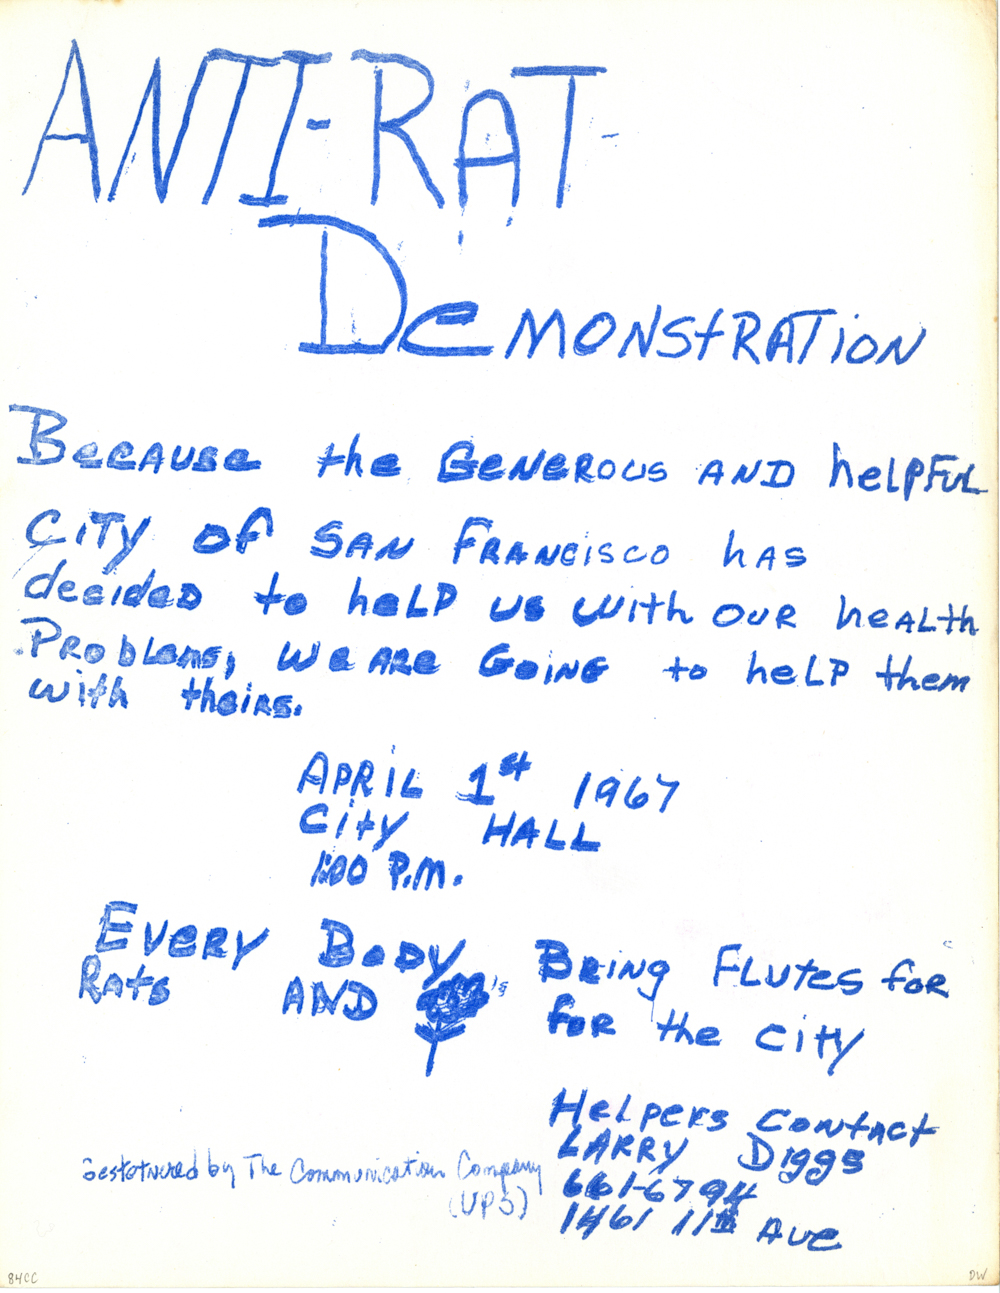 ANTI-RAT-
DeMONStRATiON
BecAuse the GeNeROUS AND helpFuL
City of SAN FRANCISCO hAS
decided to heLP us with OUR heALth
PRobLems, we ARe GoiNG to heLP them
with theirs.
APRiL 1st 1967
City HALL
1:00 P.M.
EveRY BoDY BRing FLutes foR
Rats AND 's foR the City
HeLpers CoNtAct
LARRY Diggs
661-6794
1461 11th Ave
Gestetnered by The Communication Company
(UPS)
84CC
DW